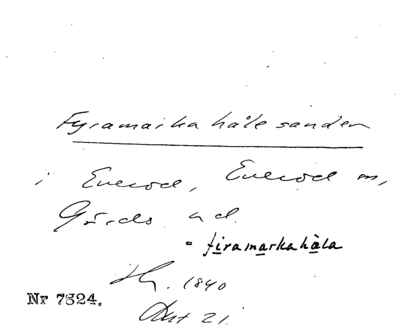 Fyramarka håle sanden
i Everöd, Everöd sn,
Gärds hd.
= firamarkahåla
1840
Nr 7324.
Akt 21.